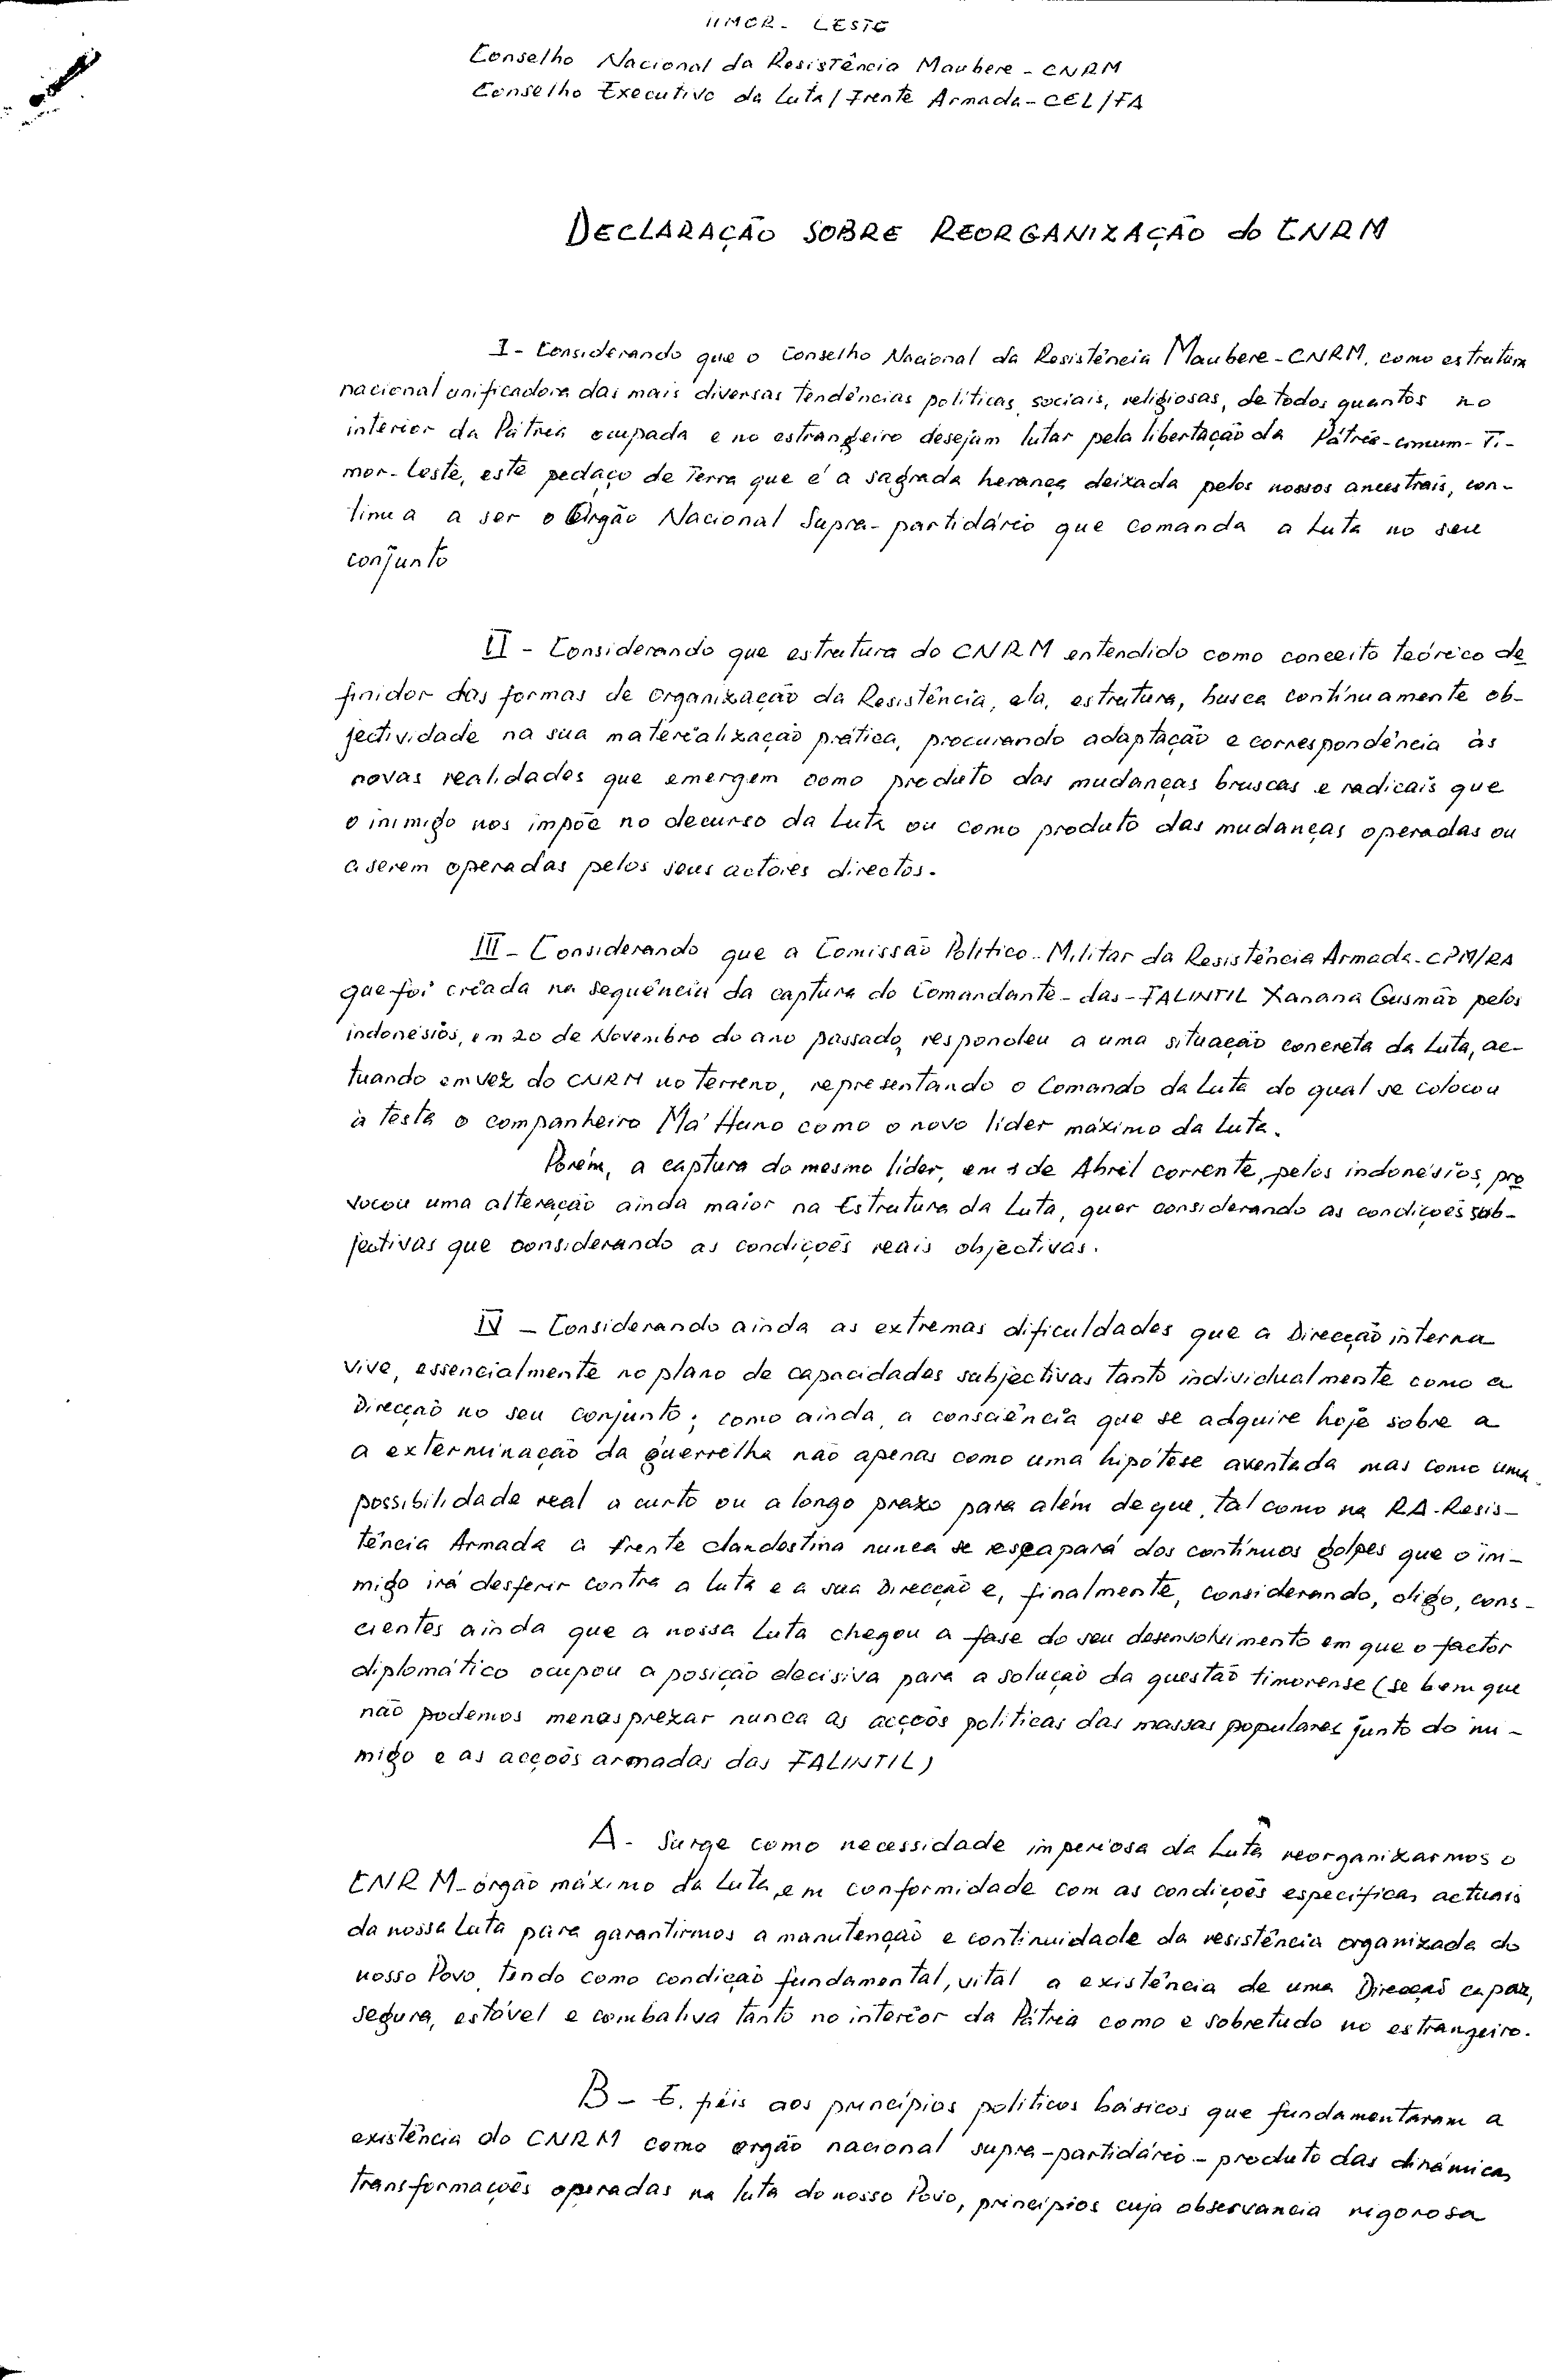 TIMOR - LESTE
Conselho Nacional da Resistência Maubere - CNRM
Conselho Executivo da Luta / Frente Armada - CEL/FA
DECLARAÇÃO SOBRE REORGANIZAÇÃO do CNRM
I - Considerando que o Conselho Nacional da Resistência Maubere - CNRM, como estrutura
nacional unificadora das mais diversas tendências políticas, sociais, religiosas, de todos quantos no
interior da Pátria ocupada e no estrangeiro desejam lutar pela libertação da Pátria-comum-Ti-
mor-Leste, este pedaço de Terra que é a sagrada herança deixada pelos nossos ancestrais, con-
tinua a ser o Orgão Nacional Supra-partidário que comanda a Luta no seu
conjunto
II - Considerando que estrutura do CNRM entendido como conceito teórico de
finidor das formas de organização da Resistência, ela, estrutura, busca contínuamente ob-
jectividade na sua materialização prática, procurando adaptação e correspondência às
novas realidades que emergem como produto das mudanças bruscas e radicais que
o inimigo nos impõe no decurso da Luta ou como produto das mudanças operadas ou
a serem operadas pelos seus actores directos.
III - Considerando que a Comissão Político-Militar da Resistência Armada - CPM/RA
que foi criada na sequência da captura do Comandante-das-FALINTIL Xanana Gusmão pelos
indonésios, em 20 de Novembro do ano passado, respondeu a uma situação concreta da Luta, ac-
tuando em vez do CNRM no terreno, representando o Comando da Luta do qual se colocou
à testa o companheiro Má Huno como o novo líder máximo da Luta.
Porém, a captura do mesmo líder, em de Abril corrente, pelos indonésios, pro
vocou uma alteração ainda maior na Estrutura da Luta, quer considerando as condições sub-
jectivas que considerando as condições reais objectivas.
IV - Considerando ainda as extremas dificuldades que a Direcção interna
vive, essencialmente no plano de capacidades subjectivas tanto individualmente como a
Direcção no seu conjunto; como ainda, a consciência que se adquire hoje sobre a
a exterminação da guerrilha não apenas como uma hipótese aventada mas como uma
possibilidade real a curto ou a longo prazo para além de que, tal como na RA-Resis-
tência Armada a frente clandestina nunca se escapará dos contínuos golpes que o ini-
migo irá desferir contra a luta e a sua Direcção e, finalmente, considerando, digo, cons-
cientes ainda que a nossa Luta chegou a fase do seu desenvolvimento em que o factor
diplomático ocupou a posição decisiva para a solução da questão timorense (se bem que
não podemos menosprezar nunca as acções políticas das massas populares junto do ini-
migo e as acções armadas das FALINTIL)
A - Surge como necessidade imperiosa da Luta reorganizarmos o
CNRM - órgão máximo da Luta, em conformidade com as condições específicas actuais
da nossa Luta para garantirmos a manutenção e continuidade da resistência organizada do
nosso Povo, tendo como condição fundamental, vital a existência de uma Direcção capaz,
segura, estável e combativa tanto no interior da Pátria como e sobretudo no estrangeiro.
B - E, fiéis aos princípios políticos básicos que fundamentaram a
existência do CNRM como orgão nacional supra-partidário - produto das dinâmicas
transformações operadas na luta do nosso Povo, princípios cuja observancia rigorosa